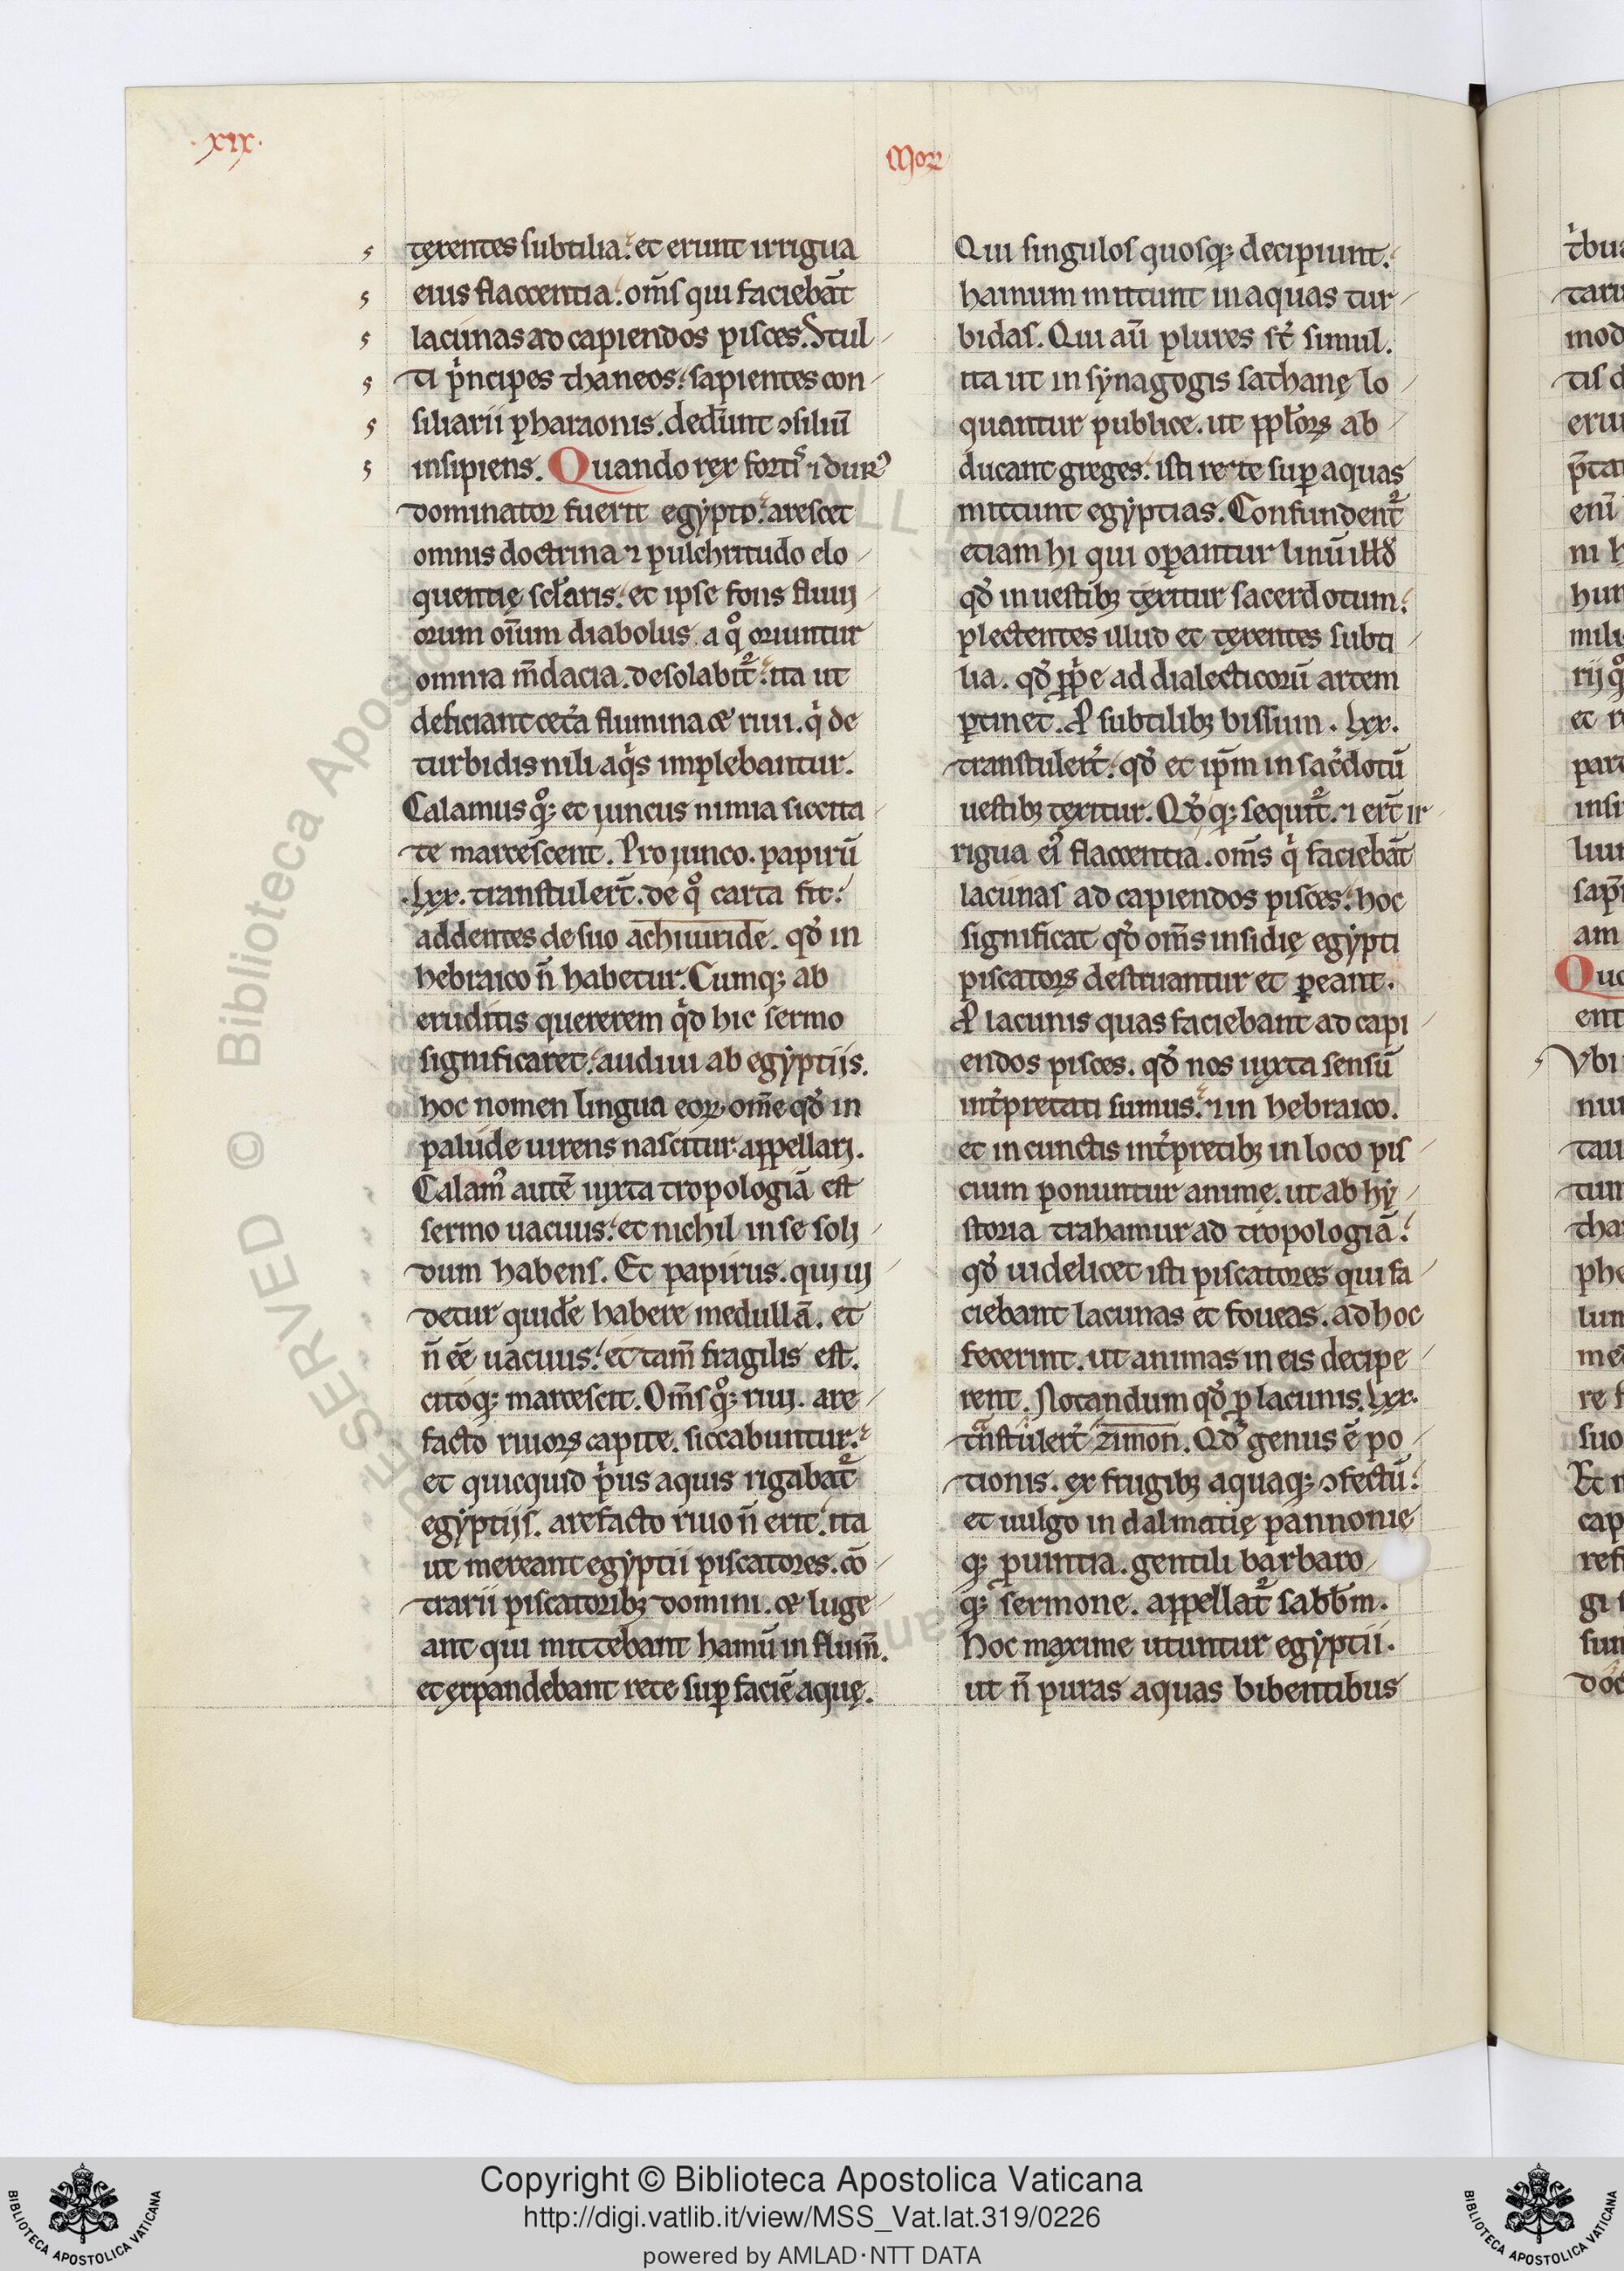 ·xıx·
Moꝝ
texentes subtilia. et erunt irrigua
eius flaccentia. om̅s qui faciebāt
lacunas ad capiendos pisces. Stul
ti pͥncipes thaneos. sapientes con
siliarii pharaonis. dedert̅ ↄsiliū
insipiens. Quando rex fortis ⁊ durꝰ
dominator fuerit egẏpto. arescet
omnis doctrina ⁊ pulchritudo elo
quentię sclaris. et ipse fons fluuij
orum oīum diabolus a qͦ oriuntur
omnia m̅dacia. desolabit᷑. ita ut
deficiant cet̉a flumina ꝛ riui. qͥ de
turbidis nili aqͥs implebantur.
Calamus qͦꝫ et juncus nimia siccita
te marcescent. Pro junco. papirū
.lxx. transtulert̅. de qͦ carta fit.
addentes de suo achiuuride. qđ in
hebraico n̅ habetur. Cumqꝫ ab
eruditis quererem qͥd hic sermo
significaret. audiui ab egẏptijs.
hoc nomen lingua eoꝝ. om̅e qđ in
palude uirens nascitur appellarj.
Calamꝰ autē iuxta tropologiā est
sermo uacuus. et nichil in se solj
dum habens. Et papirus. quj uj
detur quidē habere medullā. et
n̅ ee̅ uacuus. et tam̅ fragilis est.
citoqꝫ marcescit. Om̅s qͦꝫ riuj. are
facto riuoꝝ capite. siccabuntur.
et quicquid pͥus aquis rigabat᷑
egẏptijs. arefacto riuo n̅ erit. ita
ut mereant egẏptii piscatores. cō
trarii piscatoribꝫ domini. ꝛ luge
ant qui mittebant hamū in flum̅.
et expandebant rete suꝑ faciē aquę.
Qui singulos quosqꝫ decipiunt.
hamum mittunt in aquas tur
bidas. Qui aū plures st̅ simul.
ita ut in sẏnagogis sathanę lo
quantur publice. ut ppl̅oꝝ ab
ducant greges. isti rete suꝑ aquas
mittunt egẏptias. Confundent᷑
etiam hi qui oꝑantur linū illđ
qđ in uestibꝫ texitur sacerdotum.
plectentes illud et texentes subti
lia. qđ ꝓpͥe ad dialecticorū artem
ꝑtinet. P̱ subtilibꝫ bissum. lxx.
transtulert̅. qđ et ip̅m in sac̉dotū
uestibꝫ texitur. Qđqꝫ sequit᷑. ⁊ ert̅ ir
rigua eiꝰ flaccentia. om̅s qͥ faciebāt
lacunas ad capiendos pisces. hoc
significat qđ om̅s insidię egẏpti
piscatoꝝ destruantur et ꝑeant.
P̱ lacunis quas faciebant ad capi
endos pisces. qđ nos iuxta sensū
int̉pretati sumus. ⁊ in hebraico.
et in cunctis int̉pretibꝫ in loco pis
cium ponuntur animę. ut ab hẏ
storia trahamur ad tropologiā.
qđ uidelicet isti piscatores qui fa
ciebant lacunas et foueas. ad hoc
fecerint. ut animas in eis decipe
rent. Notandum qđ ꝓ lacunis. lxx.
tᷓnstulert̅ zimon. Qđ genus ē po
tionis. ex frugibꝫ aquaqꝫ ↄfectū.
et uulgo in dalmatię pannonię
qꝫ ꝓuintia. gentili barbaro
qꝫ sermone. appellat᷑ sabb̅m.
Hoc maxime utuntur egẏptii.
ut n̅ puras aquas bibentibus
Copyright © Biblioteca Apostolica Vaticana
http://digi.vatlib.it/view/MSS_Vat.lat.319/0226
powered by AMLAD·NTT DATA